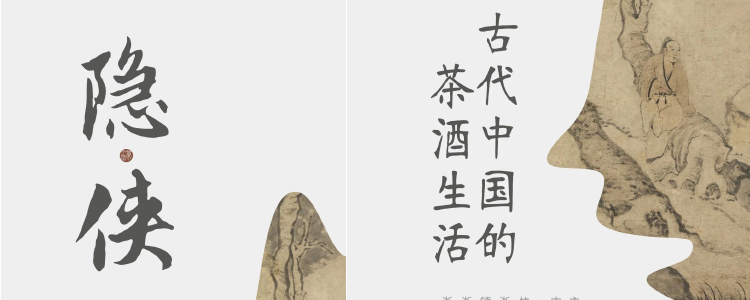 隐侠
古代中国的
茶酒生活